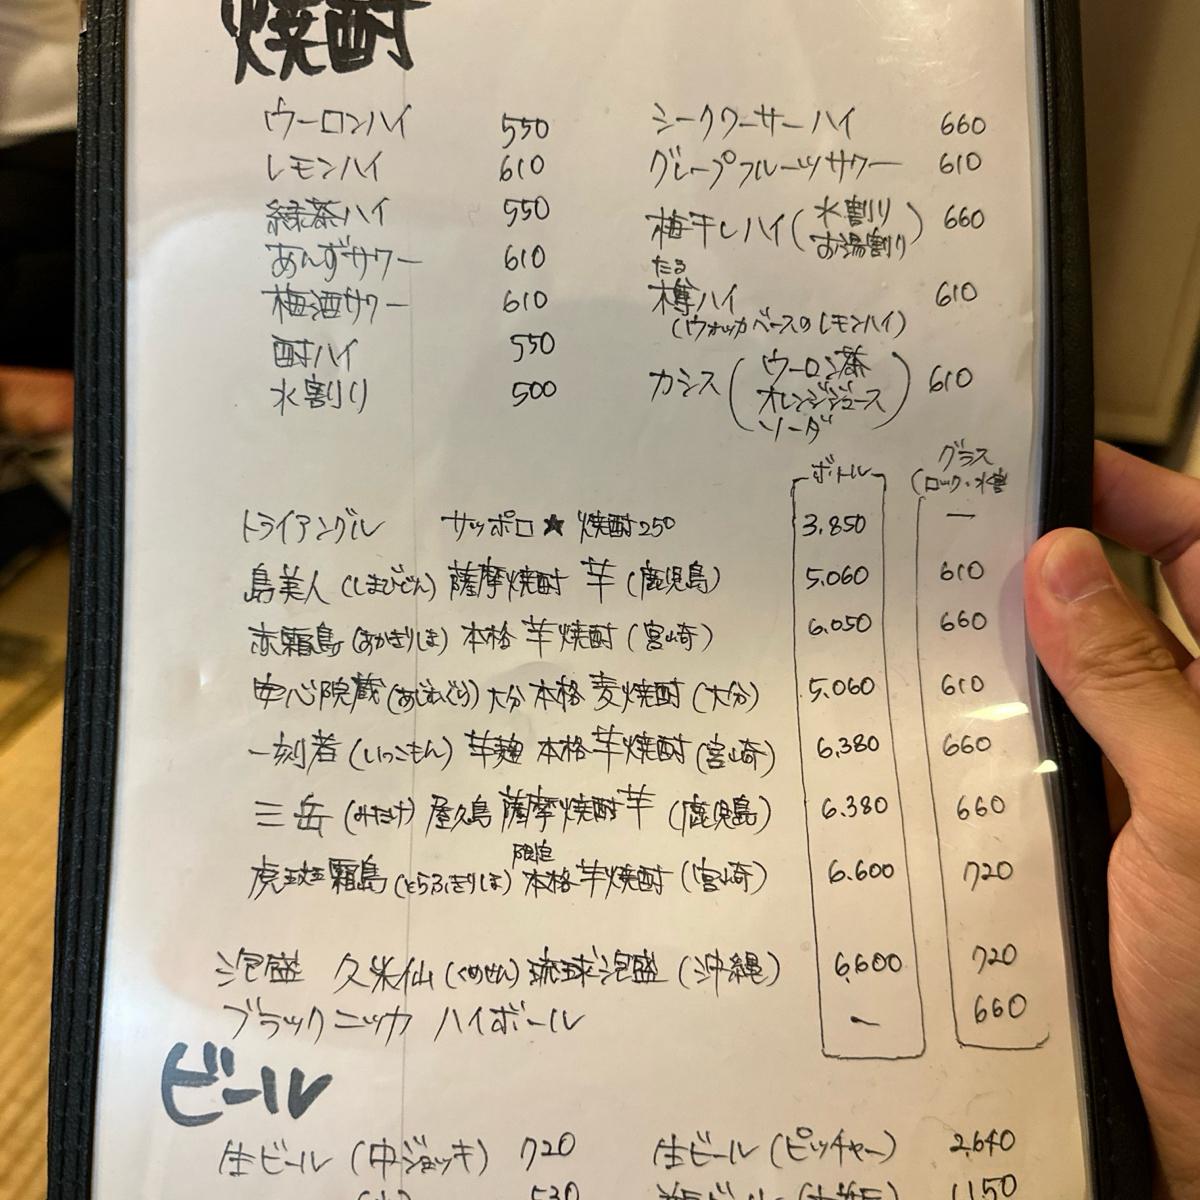 焼酎
ウーロンハイ 550 シークワーサーハイ 660
レモンハイ 610 グレープフルーツサワー 610
緑茶ハイ 550 梅干しハイ(水割り お湯割り) 660
あんずサワー 610
梅酒サワー 610 樽ハイ 610
たる
(ウォッカベースのレモンハイ)
酎ハイ 550
水割り 500 カシス(ウーロン茶 オレンジジュース ソーダ) 610
ボトル グラス
(ロック・水割
トライアングル サッポロ★焼酎250 3.850 ー
島美人(しまびじん)薩摩焼酎 芋(鹿児島) 5.060 610
赤霧島(あかぎりしま)本格 芋焼酎(宮崎) 6.050 660
安心院蔵(あじむぐら)大分 本格 麦焼酎(大分) 5.060 610
一刻者(いっこもん)芋麹 本格 芋焼酎(宮崎) 6.380 660
三岳(みたけ)屋久島 薩摩焼酎芋(鹿児島) 6.380 660
限定
虎斑霧島(とらふきりしま)本格芋焼酎(宮崎) 6.600 720
泡盛 久米仙(くめせん)琉球泡盛(沖縄) 6.600 720
ブラックニッカ ハイボール ー 660
ビール
生ビール(中ジョッキ) 720 生ビール(ピッチャー) 2.640
530 1.150